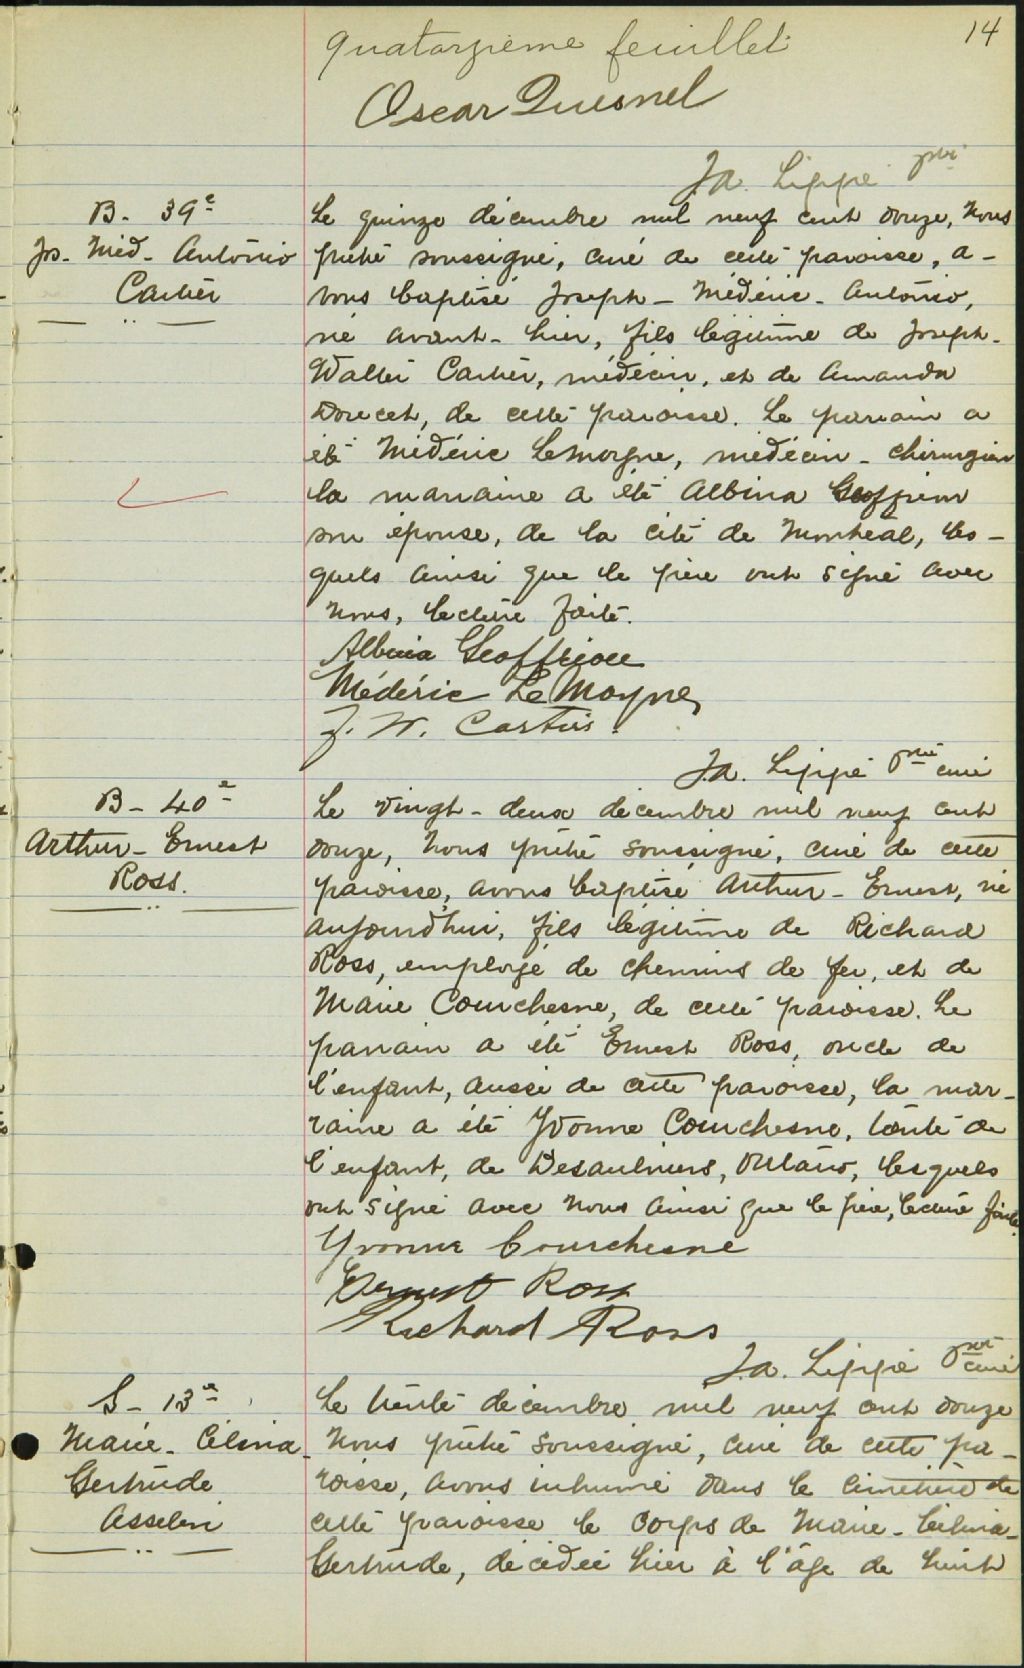 14
quatorzième feuillet
Oscar Quesnel
J.A. Lippé ptre
B. 39e
Jos. Méd. Antonio
Cartier
Le quinze décembre mil neuf cent douze, Nous
prêtre soussigné, curé de cette paroisse, a-
vons baptisé Joseph - Médéric - Antonio,
né avant-hier, fils légitime de Joseph-
Walter Cartier, médecin, et de Amanda
Doucet, de cette paroisse. Le parrain a
été Médéric Lemoyne, médecin - chirurgien
la marraine a été Albina Geoffrion
son épouse, de la cité de Montréal, les-
quels ainsi que le père ont signé avec
nous, lecture faite.
Albina Geoffrion
Médéric LeMoyne
J. W. Cartier.
J.A. Lippé ptre curé
B - 40e
Arthur - Ernest
Ross.
Le vingt-deux décembre mil neuf cent
douze, Nous prêtre soussigné, curé de cette
paroisse, avons baptisé Arthur - Ernest, né
aujourd'hui, fils légitime de Richard
Ross, employé de chemins de fer, et de
Marie Courchesne, de cette paroisse. Le
parrain a été Ernest Ross, oncle de
l'enfant, aussi de cette paroisse, la mar-
raine a été Yvonne Courchesne, tante de
l'enfant, de Desaulniers, Ontario, lesquels
ont signé avec nous ainsi que le père, lecture faite.
Yvonne Courchesne
Ernest Ross
Richard Ross
J.A. Lippé ptre curé
S - 13e
Marie - Célina
Gertrude
Asselin
Le trente décembre mil neuf cent douze
Nous prêtre soussigné, curé de cette pa-
roisse, avons inhumé dans le cimetière de
cette paroisse le corps de Marie - Célina -
Gertrude, décédée hier à l'âge de huit